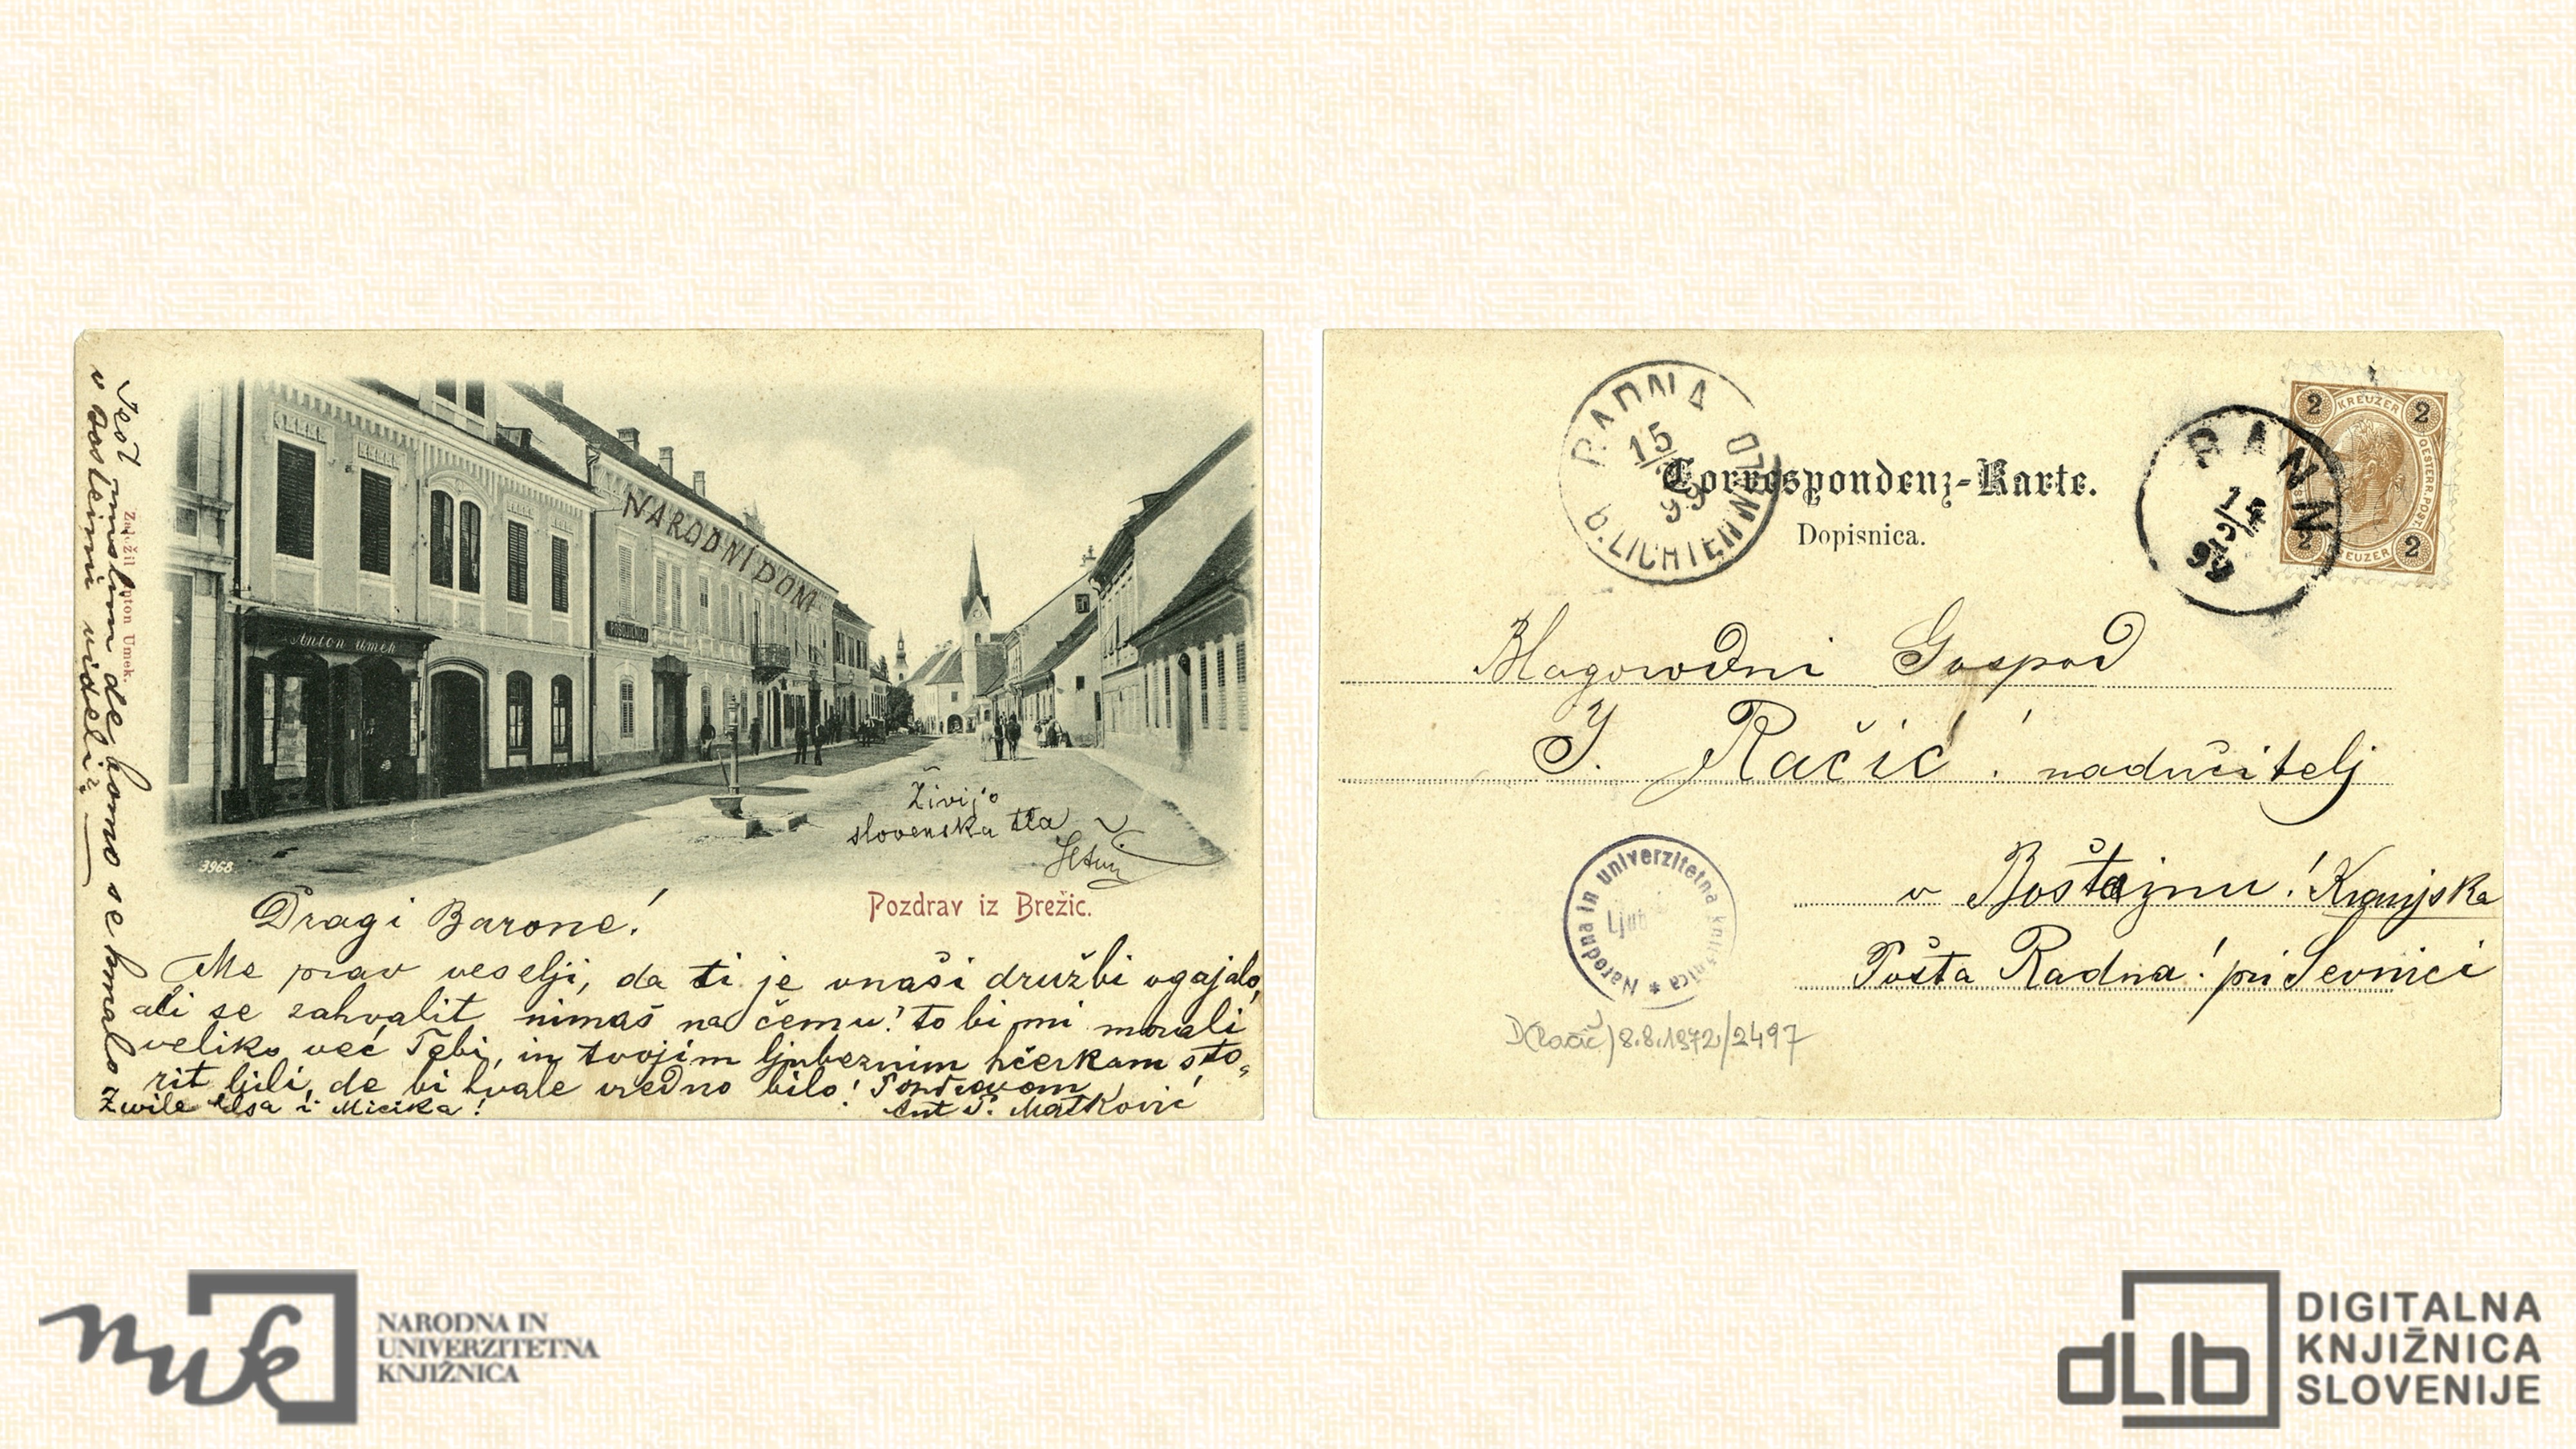 NARODNI DOM
Anton Umek
3968.
Živijo
slovenska tla
Pozdrav iz Brežic.
Založil Anton Umek.
Dragi Barone!
Me prav veselji, da ti je v naši družbi ugajalo,
ali se zahvalit nimaš na čemu! to bi mi morali
veliko več Tebi, in tvojim ljubeznim hčerkam sto-
rit bili, da bi hvale vredno bilo! Pozdravom
Ant P. Matković
Zwile Elsa i Micika!
Jest mislim de bomo se kmalo
v Bošteinu videli?
RADNA
15/
99
b. LICHTENWALD
Correspondenz-Karte.
Dopisnica.
RANN
99
2 KREUZER 2
OESTERR. POST.
2 KREUZER 2
Blagorodni Gospod
J. Račić! nadučitelj
v Boštajnu! Kranjska
Pošta Radna! pri Sevnici
Narodna in univerzitetna knjižnica *
D(Račič) 8.8.1972/2497
nuk
NARODNA IN
UNIVERZITETNA
KNJIŽNICA
dLib
DIGITALNA
KNJIŽNICA
SLOVENIJE